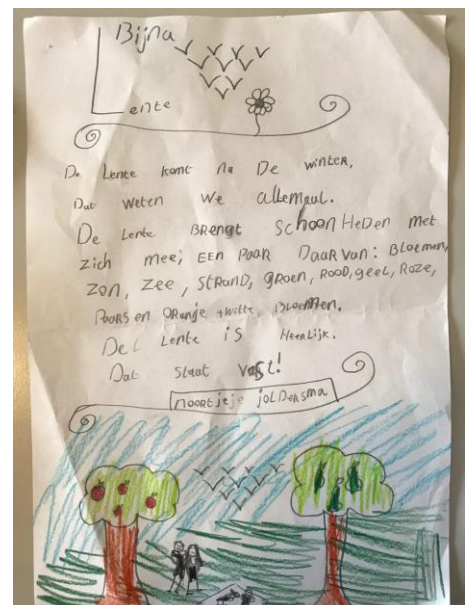 Bijna
Lente
De Lente komt na De winter,
Dat weten we allemaal.
De Lente BRengt schoonHeDen met
zich mee; EEN PAAR DAARVAN: BLoemen,
zon, zee, StRanD, gRoen, ROOD, geeL, Roze,
PaaRs en ORanje +witte, BLoemen.
De Lente is HeerLijk.
Dat staat vast!
noortjeje joLDeRsma